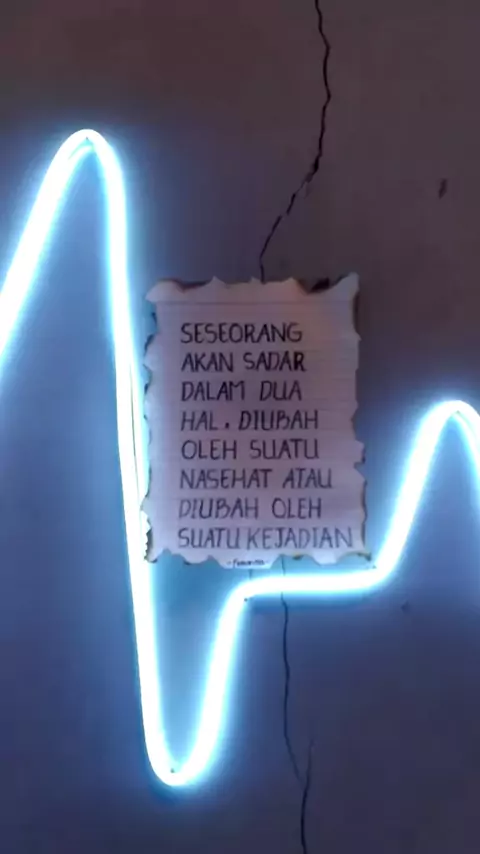 SESEORANG
AKAN SADAR
DALAM DUA
HAL, DIUBAH
OLEH SUATU
NASEHAT ATAU
DIUBAH OLEH
SUATU KEJADIAN